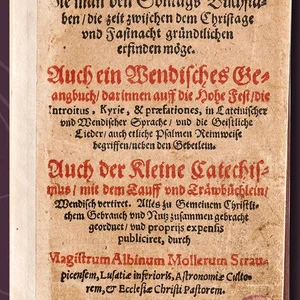 man den Sontags Buchsta-
ben / die zeit zwischen dem Christage
vnd Fasnacht gründtlichen
erfinden möge.
Auch ein Wendisches Ge-
sangbuch / darinnen auff die Hohe Fest / die
Introitus, Kyrie, & præfationes, in Lateinischer
vnd Wendischer Sprache / vnd die Geistliche
Lieder / auch etliche Psalmen Reimweise
begriffen / neben den Gebetlein.
Auch der Kleine Catechis-
mus / mit dem Tauff vnd Träwbüchlein /
Wendisch vertiret. Alles zu Gemeinem Christli-
chem Gebrauch vnd Nutz zusammen gebracht
geordnet / vnd proprijs expensis
publiciret, durch
Magistrum Albinum Mollerum Strau-
picensem, Lusatiæ inferioris, Astronomiæ Culto-
rem, & Ecclesiæ Christi Pastorem.